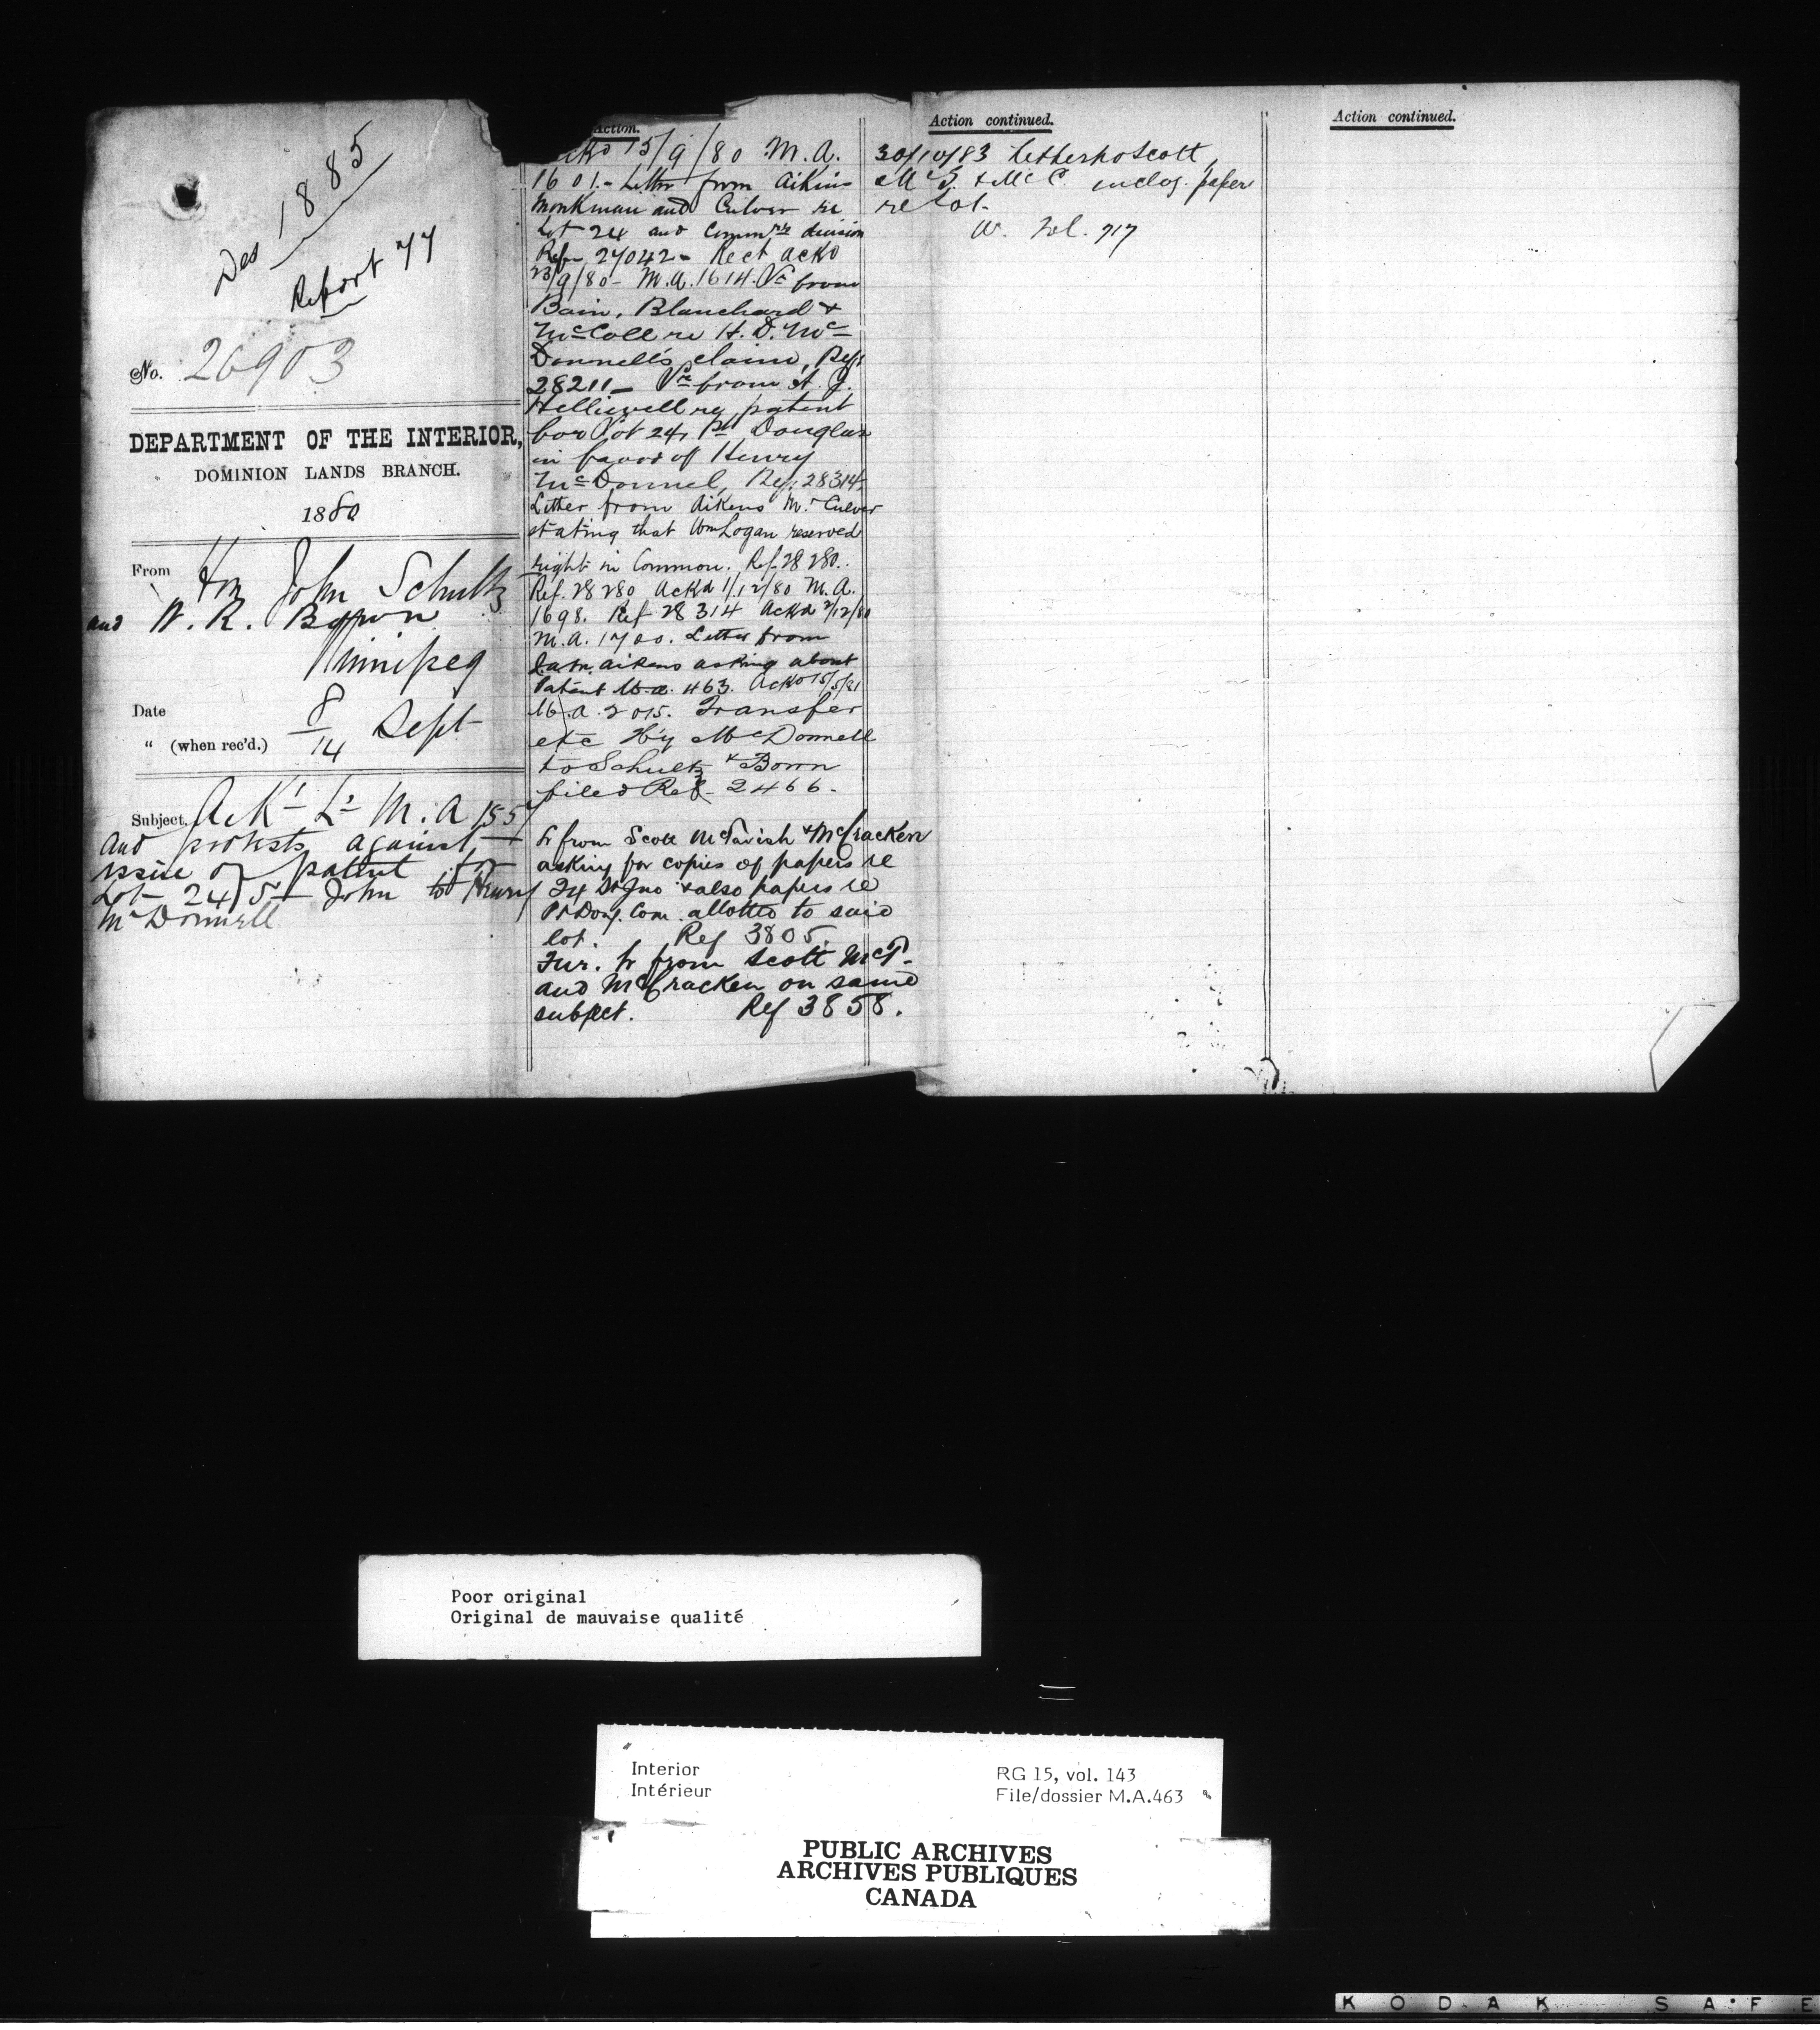 Des 1885
Report 77
No. 26903
DEPARTMENT OF THE INTERIOR,
DOMINION LANDS BRANCH.
1880
From Hon John Schultz
and W. R. Bown
Winnipeg
Date 8
" (when rec'd.) 14 Sept
Subject. Ack L M. A 155
and protests against
issue of patent for
Lot 24 St John to Henry
McDonnell
Action.
Ackd 15/9/80 M.A.
1601.- Letter from Aikins
Monkman and Culver re
Lot 24 and Commrs division
Refer 27042 - Rect Ackd
23/9/80 - M.A. 1614. from
Bain, Blanchard &
McColl re H. D. Mc
Donnell's claim, Ref:
28211 - from A. J.
Helliwell re patent
for Lot 24, Pt Douglas
in favor of Henry
McDonnel, Ref: 28314
Letter from Aikens M. Culver
stating that Wm Logan reserved
right in Common. Ref. 28280.
Ref. 28280 Ackd 1/12/80 M.A.
1698. Ref 28314 Ackd 2/12/80
M.A. 1700. Letter from
J.A.M. Aikens asking about
Patent M.A. 463. Ackd 15/5/81
M.A. 2015. Transfer
etc Hy McDonnell
to Schultz & Bown
filed Ref - 2466 -
Lr from Scott McTavish & McCracken
asking for copies of papers re
24 St Jno & also papers re
Pt Doug. Com. allotted to said
lot. Ref 3805.
Fur. lr from Scott McT.
and McCracken on same
subject. Ref 3858.
Action continued.
30/10/83 Letter to Scott,
McT. & McC. inclog. paper
re lot.
W. Fol. 717
Action continued.
Poor original
Original de mauvaise qualité
Interior
Intérieur
RG 15, vol. 143
File/dossier M.A.463
PUBLIC ARCHIVES
ARCHIVES PUBLIQUES
CANADA
KODAK SAFE